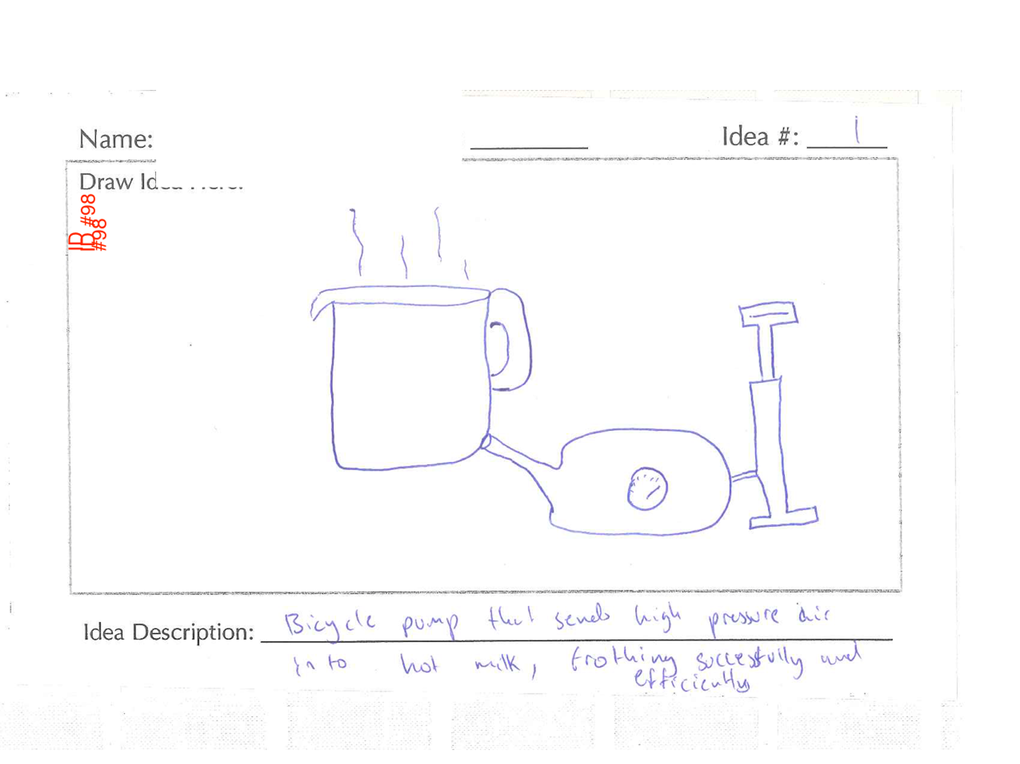 Name:
Idea #: 1
Draw Idea Here:
JB #98
#98
Idea Description: Bicycle pump that sends high pressure air
into hot milk, frothing successfully and
efficiently